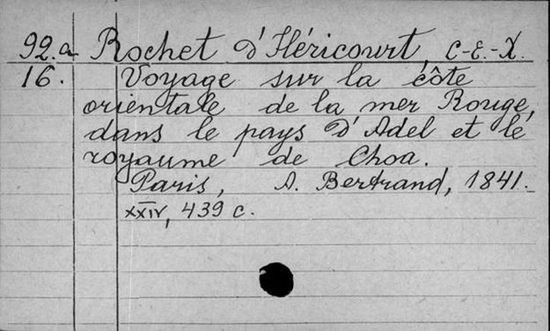 92.a Rochet d'Héricourt, C-E.-X.
16. Voyage sur la côte
orientale de la mer Rouge,
dans le pays d'Adel et le
royaume de Choa.
Paris, A. Bertrand, 1841.
XXIV, 439 c.